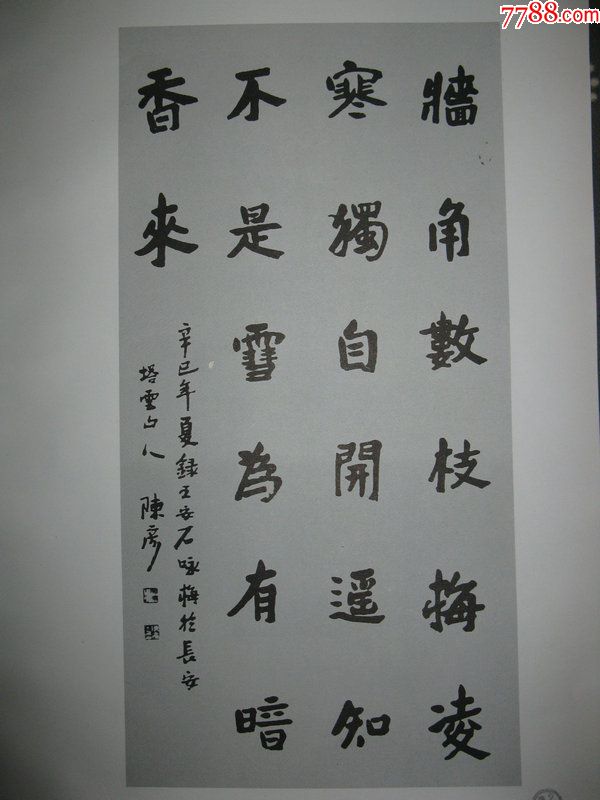 牆角數枝梅凌
寒獨自開遥知
不是雪為有暗
香來
辛巳年夏録王安石咏梅於長安
塔雲山人 陳彦
7788.com